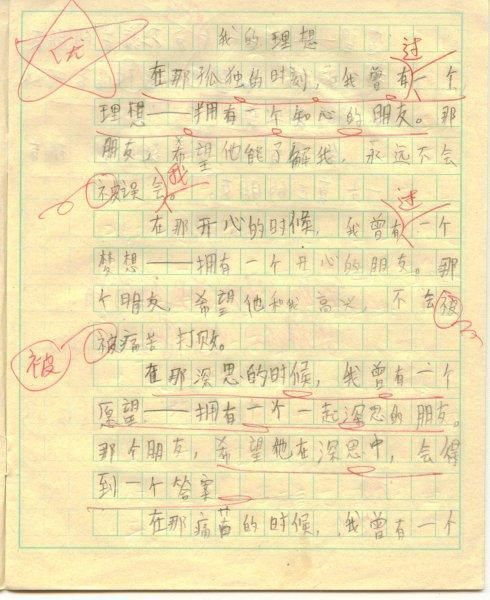 优
我的理想
过
在那孤独的时刻，我曾有一个
理想——拥有一个知心的朋友。那
朋友，希望他能了解我，永远不会
被误会。
我
过
在那开心的时候，我曾有一个
梦想——拥有一个开心的朋友。那
个朋友，希望他和我高兴，不会被
被痛苦打败。
被
在那深思的时候，我曾有一个
愿望——拥有一个一起深思的朋友。
那个朋友，希望她在深思中，会得
到一个答案
在那痛苦的时候，我曾有一个